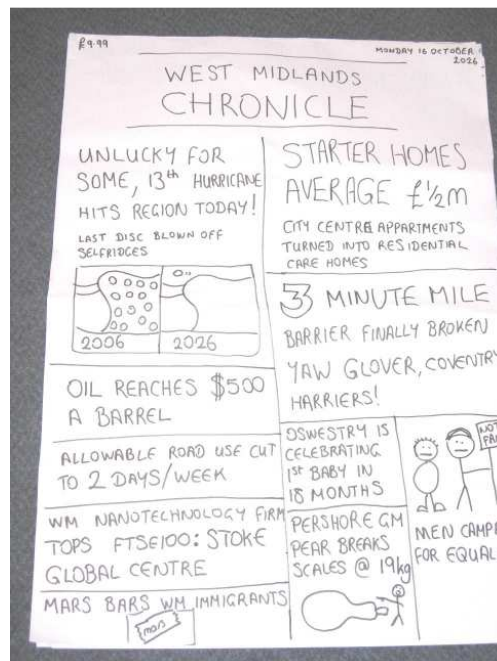 £9.99
MONDAY 16 OCTOBER
2026
WEST MIDLANDS
CHRONICLE
UNLUCKY FOR
SOME, 13th HURRICANE
HITS REGION TODAY!
LAST DISC BLOWN OFF
SELFRIDGES
2006 2026
OIL REACHES $500
A BARREL
ALLOWABLE ROAD USE CUT
TO 2 DAYS/WEEK
WM NANOTECHNOLOGY FIRM
TOPS FTSE100: STOKE
GLOBAL CENTRE
MARS BARS WM IMMIGRANTS
mars
STARTER HOMES
AVERAGE £½m
CITY CENTRE APPARTMENTS
TURNED INTO RESIDENTIAL
CARE HOMES
3 MINUTE MILE
BARRIER FINALLY BROKEN
YAW GLOVER, COVENTRY
HARRIERS!
OSWESTRY IS
CELEBRATING
1st BABY IN
18 MONTHS
PERSHORE GM
PEAR BREAKS
SCALES @ 19kg
NOT
FA
MEN CAMP
FOR EQUAL